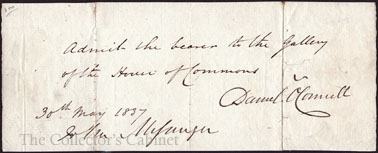 Admit the bearer to the Gallery
of the House of Commons
Daniel O'Connell
30th May 1837
To the Messenger
The Collector's Cabinet